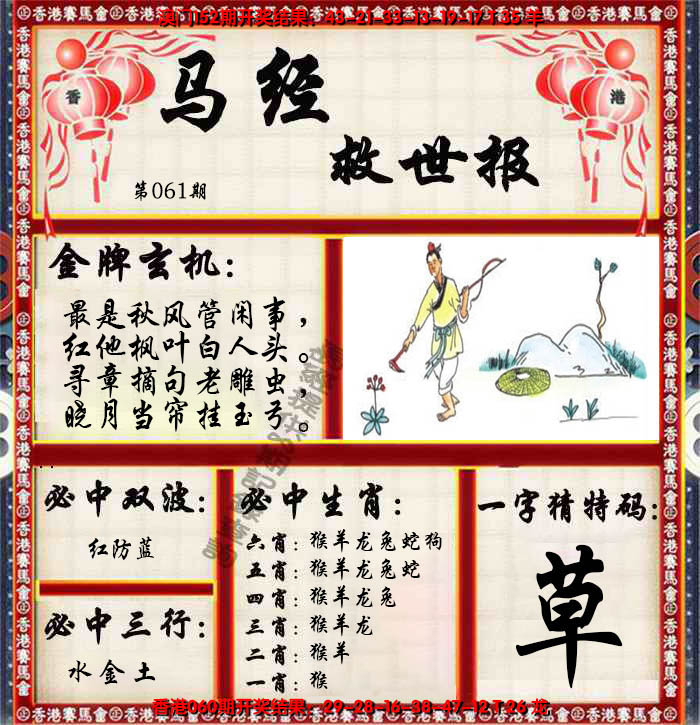 澳门152期开奖结果：43-21-33-13-19-17 T 35 羊
香
港
马经
救世报
第061期
金牌玄机：
最是秋风管闲事，
红他枫叶白人头。
寻章摘句老雕虫，
晓月当帘挂玉弓。
必中双波：
红防蓝
必中三行：
水金土
必中生肖：
六肖：猴羊龙兔蛇狗
五肖：猴羊龙兔蛇
四肖：猴羊龙兔
三肖：猴羊龙
二肖：猴羊
一肖：猴
一字猜特码：
草
香港060期开奖结果：29-28-16-38-47-12 T 26 龙
香港賽馬會